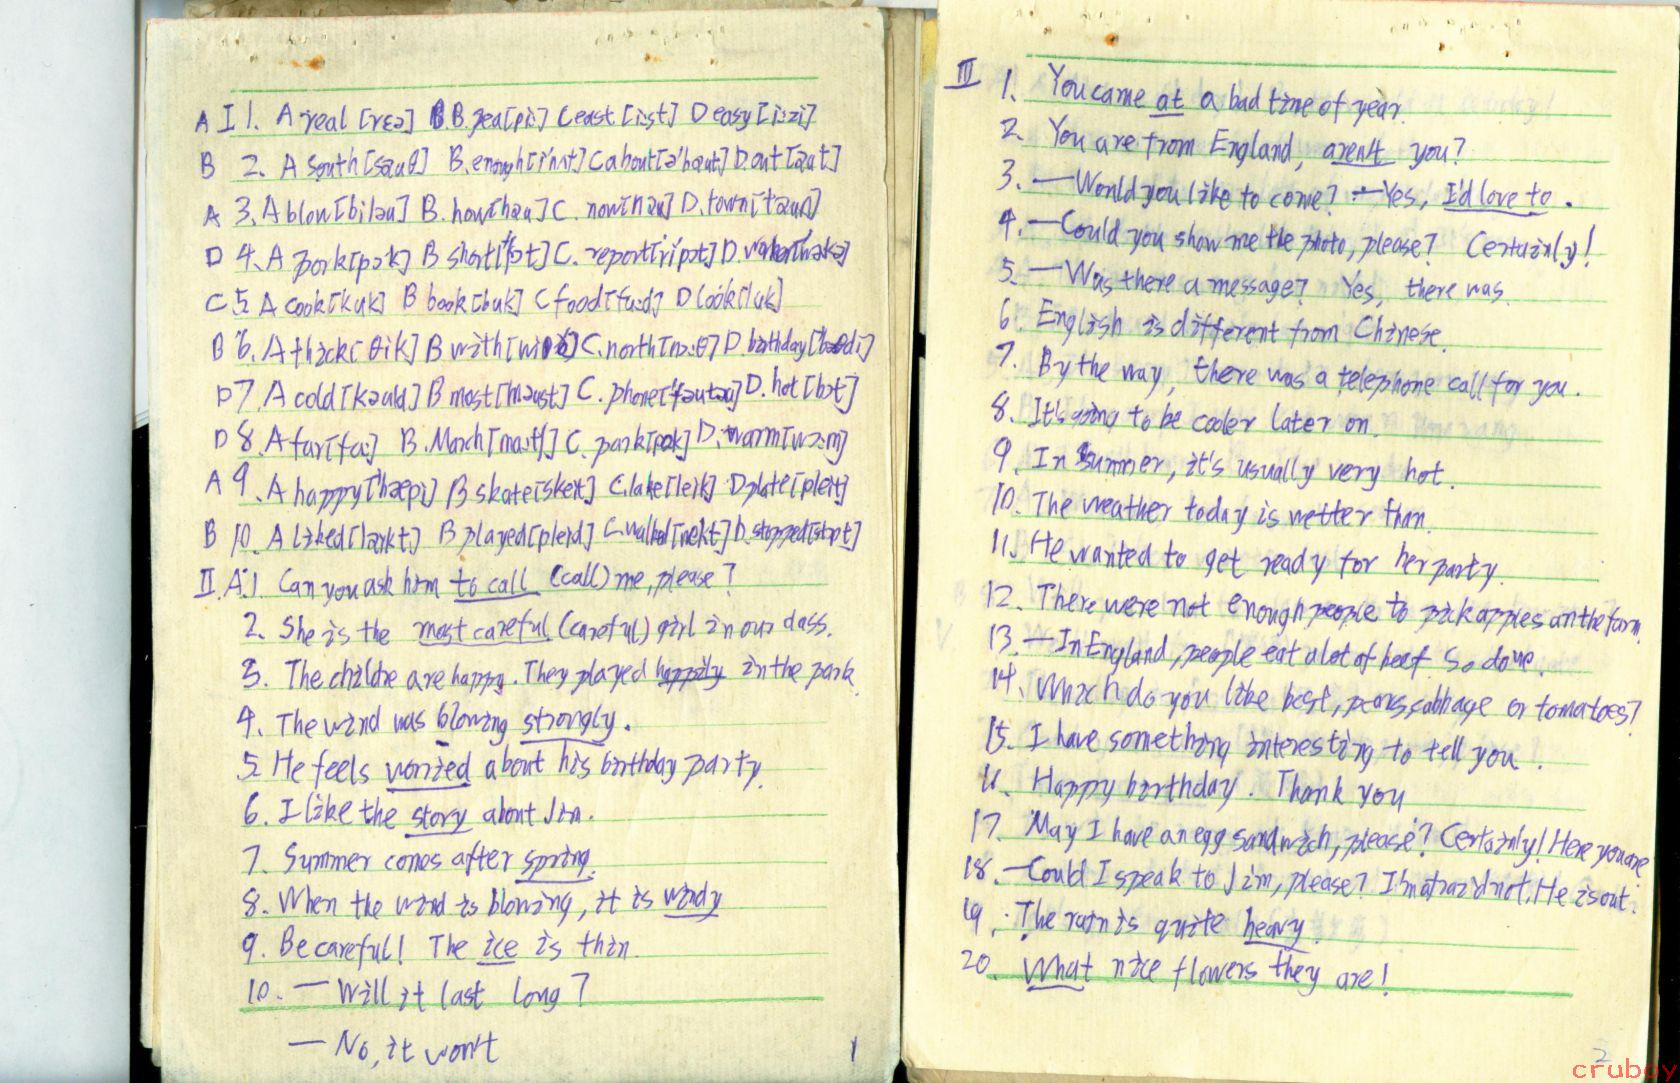 A I 1. A real [rɛə] B. pea[pi:] C east [i:st] D easy [i:zi]
B 2. A south [sauθ] B. enough [i'nʌt] C about [ə'baut] D. out [aut]
A 3. A blow [biləu] B. how [hau] C. now [nau] D. town [taun]
D 4. A pork [pɔk] B short [ʃɔt] C. report [ri'pɔt] D. worker [wəkə]
C 5. A cook [kuk] B book [buk] C food [fu:d] D look [luk]
B 6. A thick [θik] B with [wið] C. north [nɔ:θ] D. birthday [bəθdi]
D 7. A cold [kəuld] B most [məust] C. phone D. hot [hɔt]
D 8. A far [fa:] B. March [ma:tʃ] C. park [pak] D. warm [wɔ:m]
A 9. A happy ['hæpi] B skate [skeit] C. lake [leik] D plate [pleit]
B 10. A liked [laikt] B played [pleid] C walked [wɔkt] D. stopped [stɔpt]
II. A: 1 Can you ask him to call (call) me, please?
2. She is the most careful (careful) girl in our class.
3. The childre are happy. They played happily in the park
4. The wind was blowing strongly.
5. He feels worried about his birthday party.
6. I like the story about Jim.
7. Summer comes after spring.
8. When the wind is blowing, it is windy
9. Be careful! The ice is thin.
10. — Will it last long?
— No, it won't
1
III 1. You came at a bad time of year.
2. You are from England, aren't you?
3. — Would you like to come? — Yes, I'd love to.
4. — Could you show me the photo, please? Certainly!
5. — Was there a message? Yes, there was.
6. English is different from Chinese.
7. By the way, there was a telephone call for you.
8. It's going to be cooler later on.
9. In summer, it's usually very hot.
10. The weather today is wetter than.
11. He wanted to get ready for her party.
12. There were not enough people to pick apples on the farm.
13. — In England, people eat a lot of beef. So do we.
14. Which do you like best, peas, cabbage or tomatoes?
15. I have something interesting to tell you.
16. Happy birthday. Thank you
17. May I have an egg sandwich, please? Certainly! Here you are
18. — Could I speak to Jim, please? I'm afraid not. He is out.
19. The rain is quite heavy.
20. What nice flowers they are!
2
cruboy